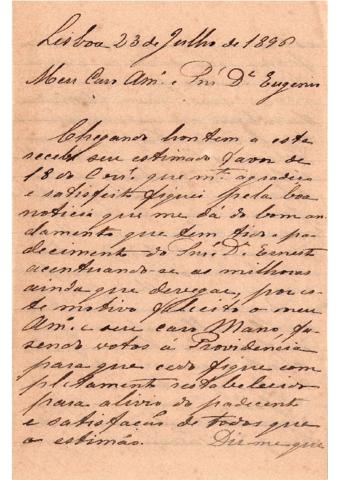 Lisboa 23 de Julho de 1896
Meu Caro Am.º e Snr. Dr. Eugenio
Chegando hontem a esta
recebi seu estimado favor de
18 do Corr.e, que m.to agradeço
e satisfeito fiquei pela boa
noticia que me dá do bom an-
damento que tem tido o pa-
decimento do Snr. Dr. Ernesto
acentuando-se as milhoras
ainda que devegar, por es-
te motivo felicito o meu
Am.º e seu caro Mano, fa-
sendo votos á Providencia
para que cedo fique com
pletamente restabelecido
para alivio do padecente
e satisfação de todos que
o estimão. Diz-me que